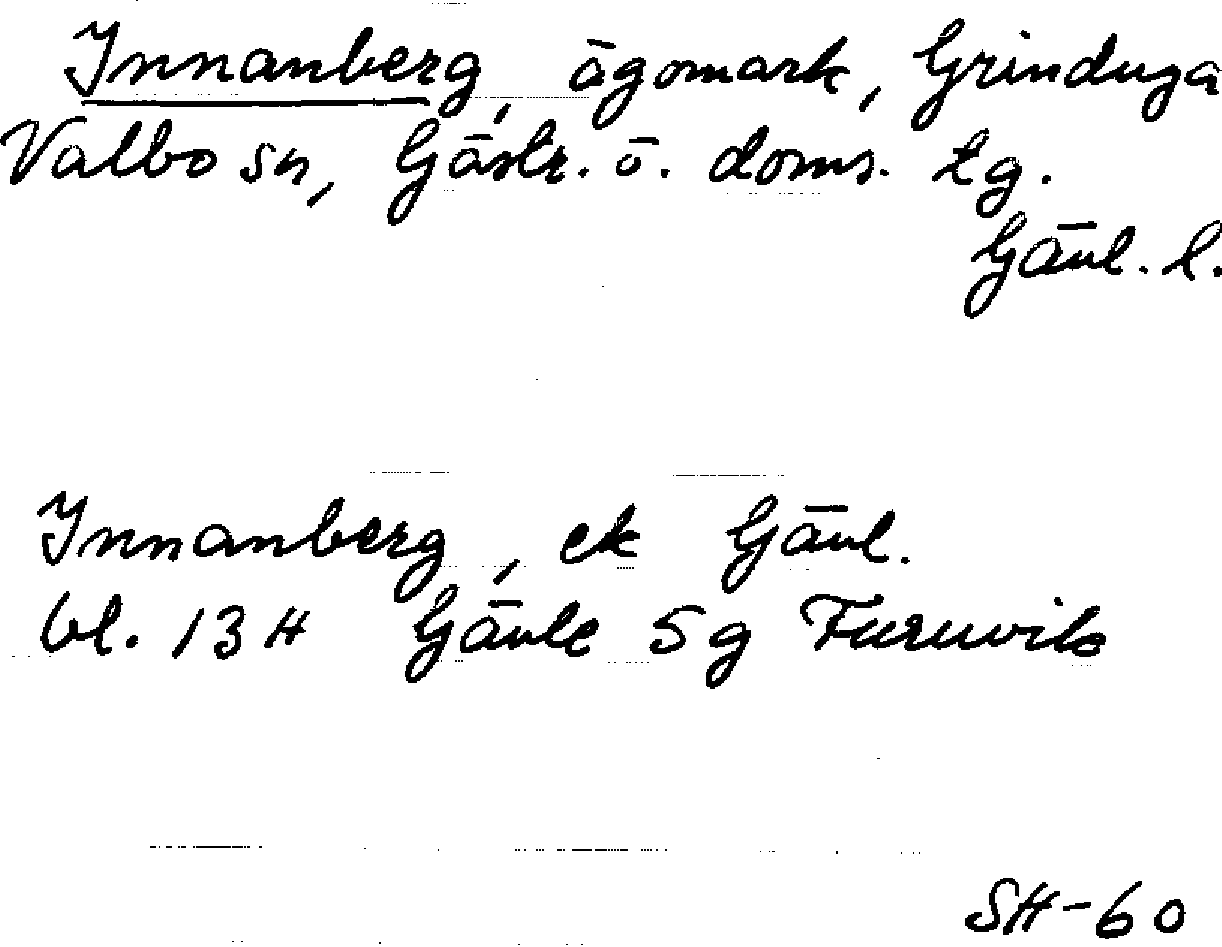 Innanberg, ägomark, Grinduga
Valbo sn, Gästr. ö. doms. tg.
Gävl. l.
Innanberg, ek Gävl.
bl. 13H Gävle 5g Furuvik
SH-60